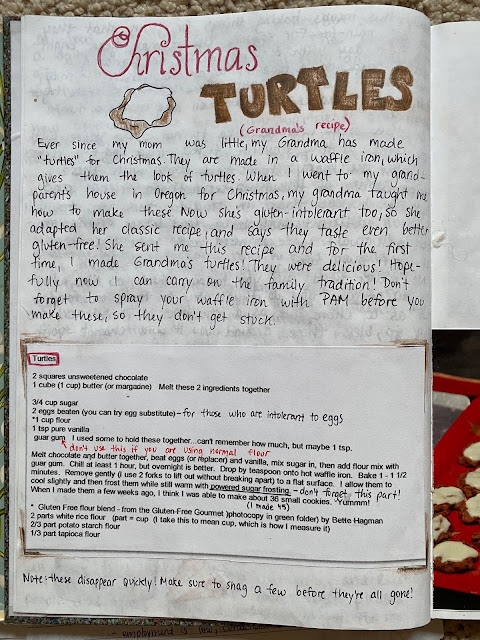 Christmas
TURTLES
(Grandma's recipe)
Ever since my mom was little, my Grandma has made
"turtles" for Christmas. They are made in a waffle iron, which
gives them the look of turtles. When I went to my grand-
parent's house in Oregon for Christmas, my grandma taught me
how to make these. Now she's gluten-intolerant too, so she
adapted her classic recipe, and says they taste even better
gluten-free! She sent me this recipe and for the first
time, I made Grandma's turtles! They were delicious! Hope-
fully now I can carry on the family tradition! Don't
forget to spray your waffle iron with PAM before you
make these, so they don't get stuck.
Turtles
2 squares unsweetened chocolate
1 cube (1 cup) butter (or margarine) Melt these 2 ingredients together
3/4 cup sugar
2 eggs beaten (you can try egg substitute) - for those who are intolerant to eggs
*1 cup flour
1 tsp pure vanilla
guar gum I used some to hold these together...can't remember how much, but maybe 1 tsp.
don't use this if you are using normal flour
Melt chocolate and butter together, boat eggs (or rhplacer) and vanilla, mix sugar in, then add flour mix with
guar gum. Chill at least 1 hour, but overnight is better. Drop by teaspoon onto hot waffle iron. Bake 1 - 1 1/2
minutes. Remove gently (I use 2 forks to lift out without breaking apart) to a flat surface. I allow them to
cool slightly and then frost them while still warm with powdered sugar frosting. - don't forget this part!
When I made them a few weeks ago, I think I was able to make about 36 small cookies. *Yummm!
(I made 45)
* Gluten Free flour blend - from the Gluten-Free Gourmet )photocopy in green folder) by Bette Hagman
2 parts white rice flour (part = cup (I take this to mean cup, which is how I measure it)
2/3 part potato starch flour
1/3 part tapioca flour
Note: these disappear quickly! Make sure to snag a few before they're all gone!